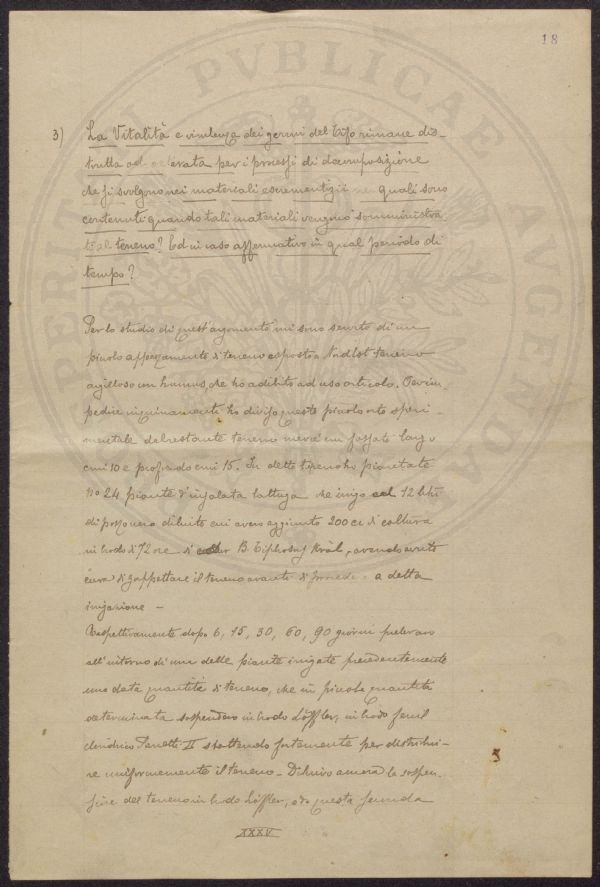 18
3) La Vitalità e virulenza dei germi del tifo rimane dis-
trutta od alterata per i processi di decomposizione
che si svolgono nei materiali escrementizii nei quali sono
contenuti quando tali materiali vengono somministra
ti al terreno? Ed in caso affermativo in qual periodo di
tempo?
Per lo studio di quest'argomento mi sono servito di un
piccolo appezzamento di terreno esposto a Nord Est terreno
argilloso con humus, che ho adibito ad uso orticolo. Per im
pedire inquinamenti ho diviso questo piccolo orto speri-
mentale dal restante terreno mercè un fossato largo
cmi 10 e profondo cmi 15. In detto terreno ho piantate
no 24 piante d'insalata lattuga che irrigo col 12 litri
di pozzo nero diluito cui avevo aggiunto 200 cc di coltura
in brodo di 72 ore di B. Tiphosus Kràl, avendo avuto
cura di zappettare il terreno avanti di procedere a detta
irrigazione -
Rispettivamente dopo 6, 15, 30, 60, 90 giorni prelevavo
all'intorno di una delle piante irrigate precedentemente
una data quantità di terreno, che in piccola quantità
determinata sospendevo in brodo Löffler, in brodo fenil
cloridrico Parietti II sbattendo fortemente per distribui-
re uniformemente il terreno - Diluivo ancora la sospen-
sione del terreno in brodo Löffler, e da questa seconda
XXXV
3